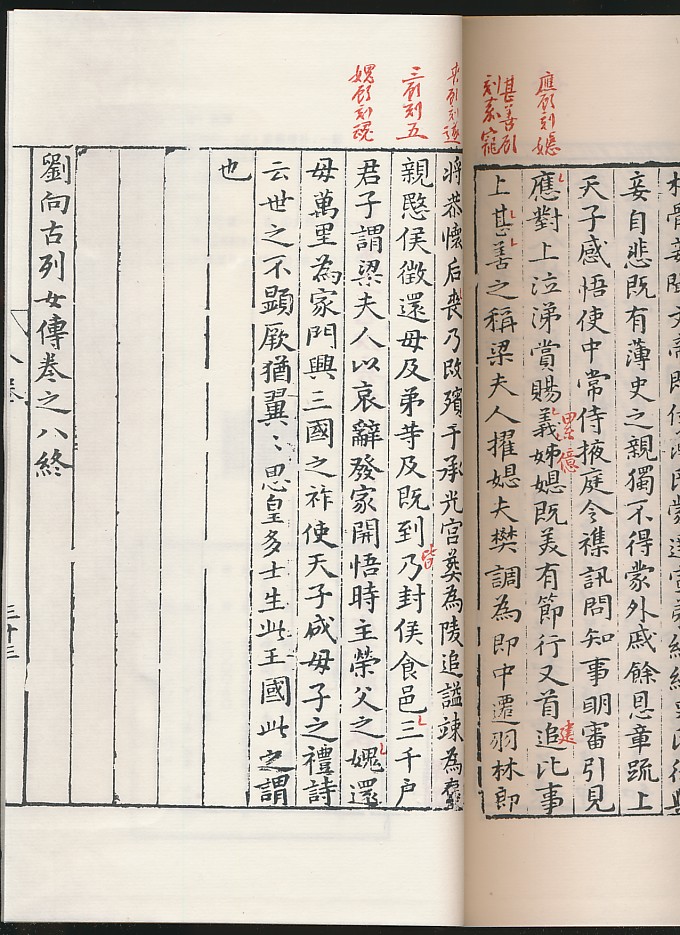 應顧刻媳
甚善顧
刻慕寵
喪顧刻遂
三顧刻五
媿顧刻魂
妾自悲既有薄史之親獨不得蒙外戚餘恩章䟽上
天子感悟使中常侍掖庭令襍訊問知事眀審引見
應對上泣涕賞賜義姊媳既羙有節行又首追比事
累億
建
上甚善之稱梁夫人擢媳夫樊調為郎中遷羽林郎
將恭懷后喪乃改殯于承光宮葬為陵追謚竦為褒
皆
親愍侯徵還母及弟䓁及既到乃封侯食邑三千户
君子謂梁夫人以哀辭發家開悟時主榮父之媿還
母萬里為家門興三國之祚使天子成母子之禮詩
云世之不顯厥猶翼〻思皇多士生此王國此之謂
也
劉向古列女傳卷之八終
三十三